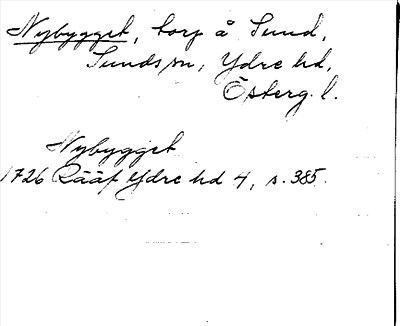 Nybygget, torp å Sund,
Sunds sn, Ydre hd,
Österg. l.
Nybygget
1726 Rääf Ydre hd 4, s. 385.